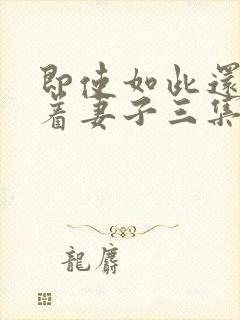 即使如此還
着妻子三集
龍麝